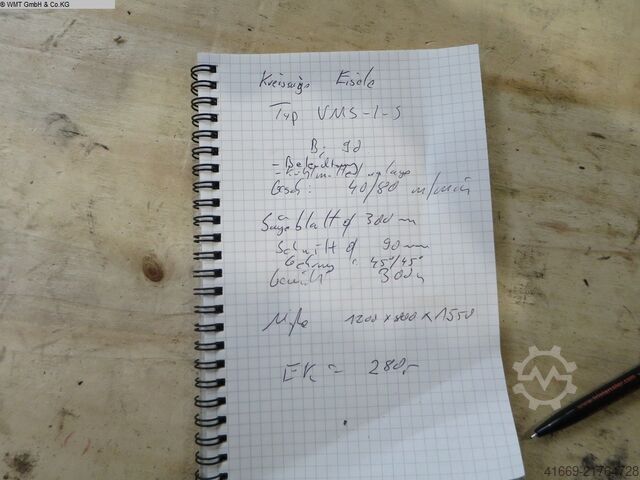 © WMT GmbH & Co.KG
Kreissäge Eisele
Typ VMS-I-S
Bj 90
- Beleuchtung
- Kühlmittelanlage
Gesch: 40/80 m/min
Sägeblatt Ø 300 m
Schnitt Ø 90 mm
Gehrung 45°/45°
Gewicht 300
Maße 1200 x 800 x 1550
EK = 280,-
41669-21764728